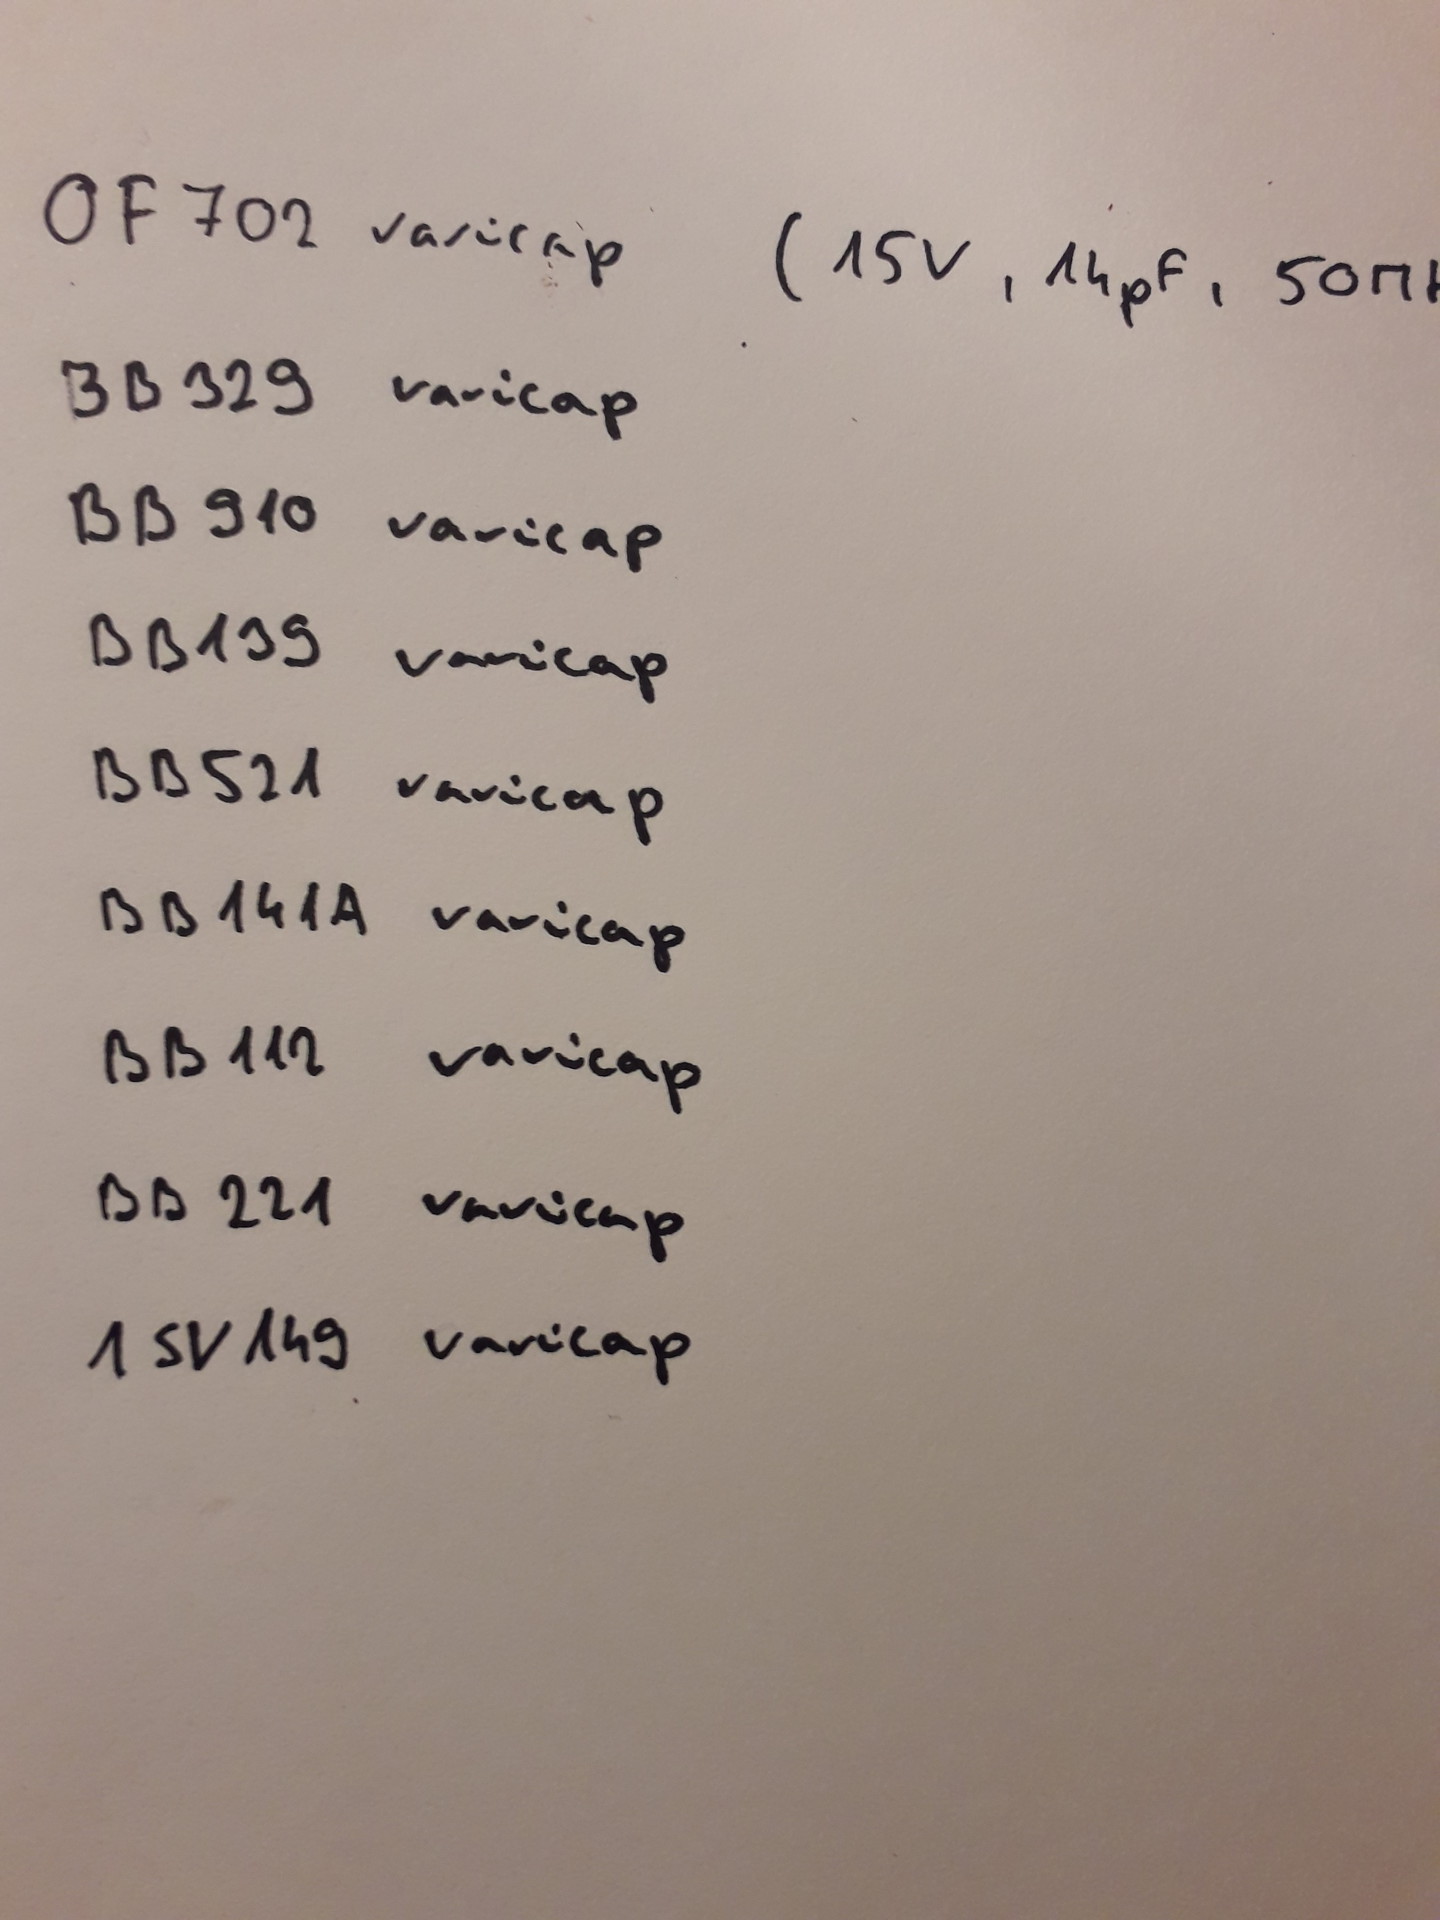 OF702 varicap (15V, 14pF, 50MH
BB329 varicap
BB910 varicap
BB139 varicap
BB521 varicap
BB141A varicap
BB112 varicap
BB221 varicap
1SV149 varicap